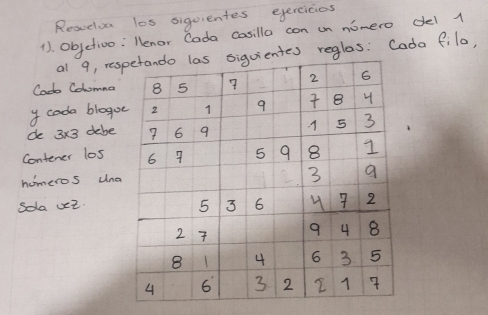 Resuelva los siguientes ejercicios
1). Objetivo: llenar Cada casilla con un número del 1
al 9, respetando las siguientes reglas: Cada fila,
Cada Columna
y cada bloque
de 3x3 debe
Contener los
números una
Sola vez.
8 5 7 2 6
2 1 9 7 8 4
7 6 9 1 5 3
6 7 5 9 8 1
3 9
5 3 6 4 7 2
2 7 9 4 8
8 1 4 6 3 5
4 6 3 2 2 1 7